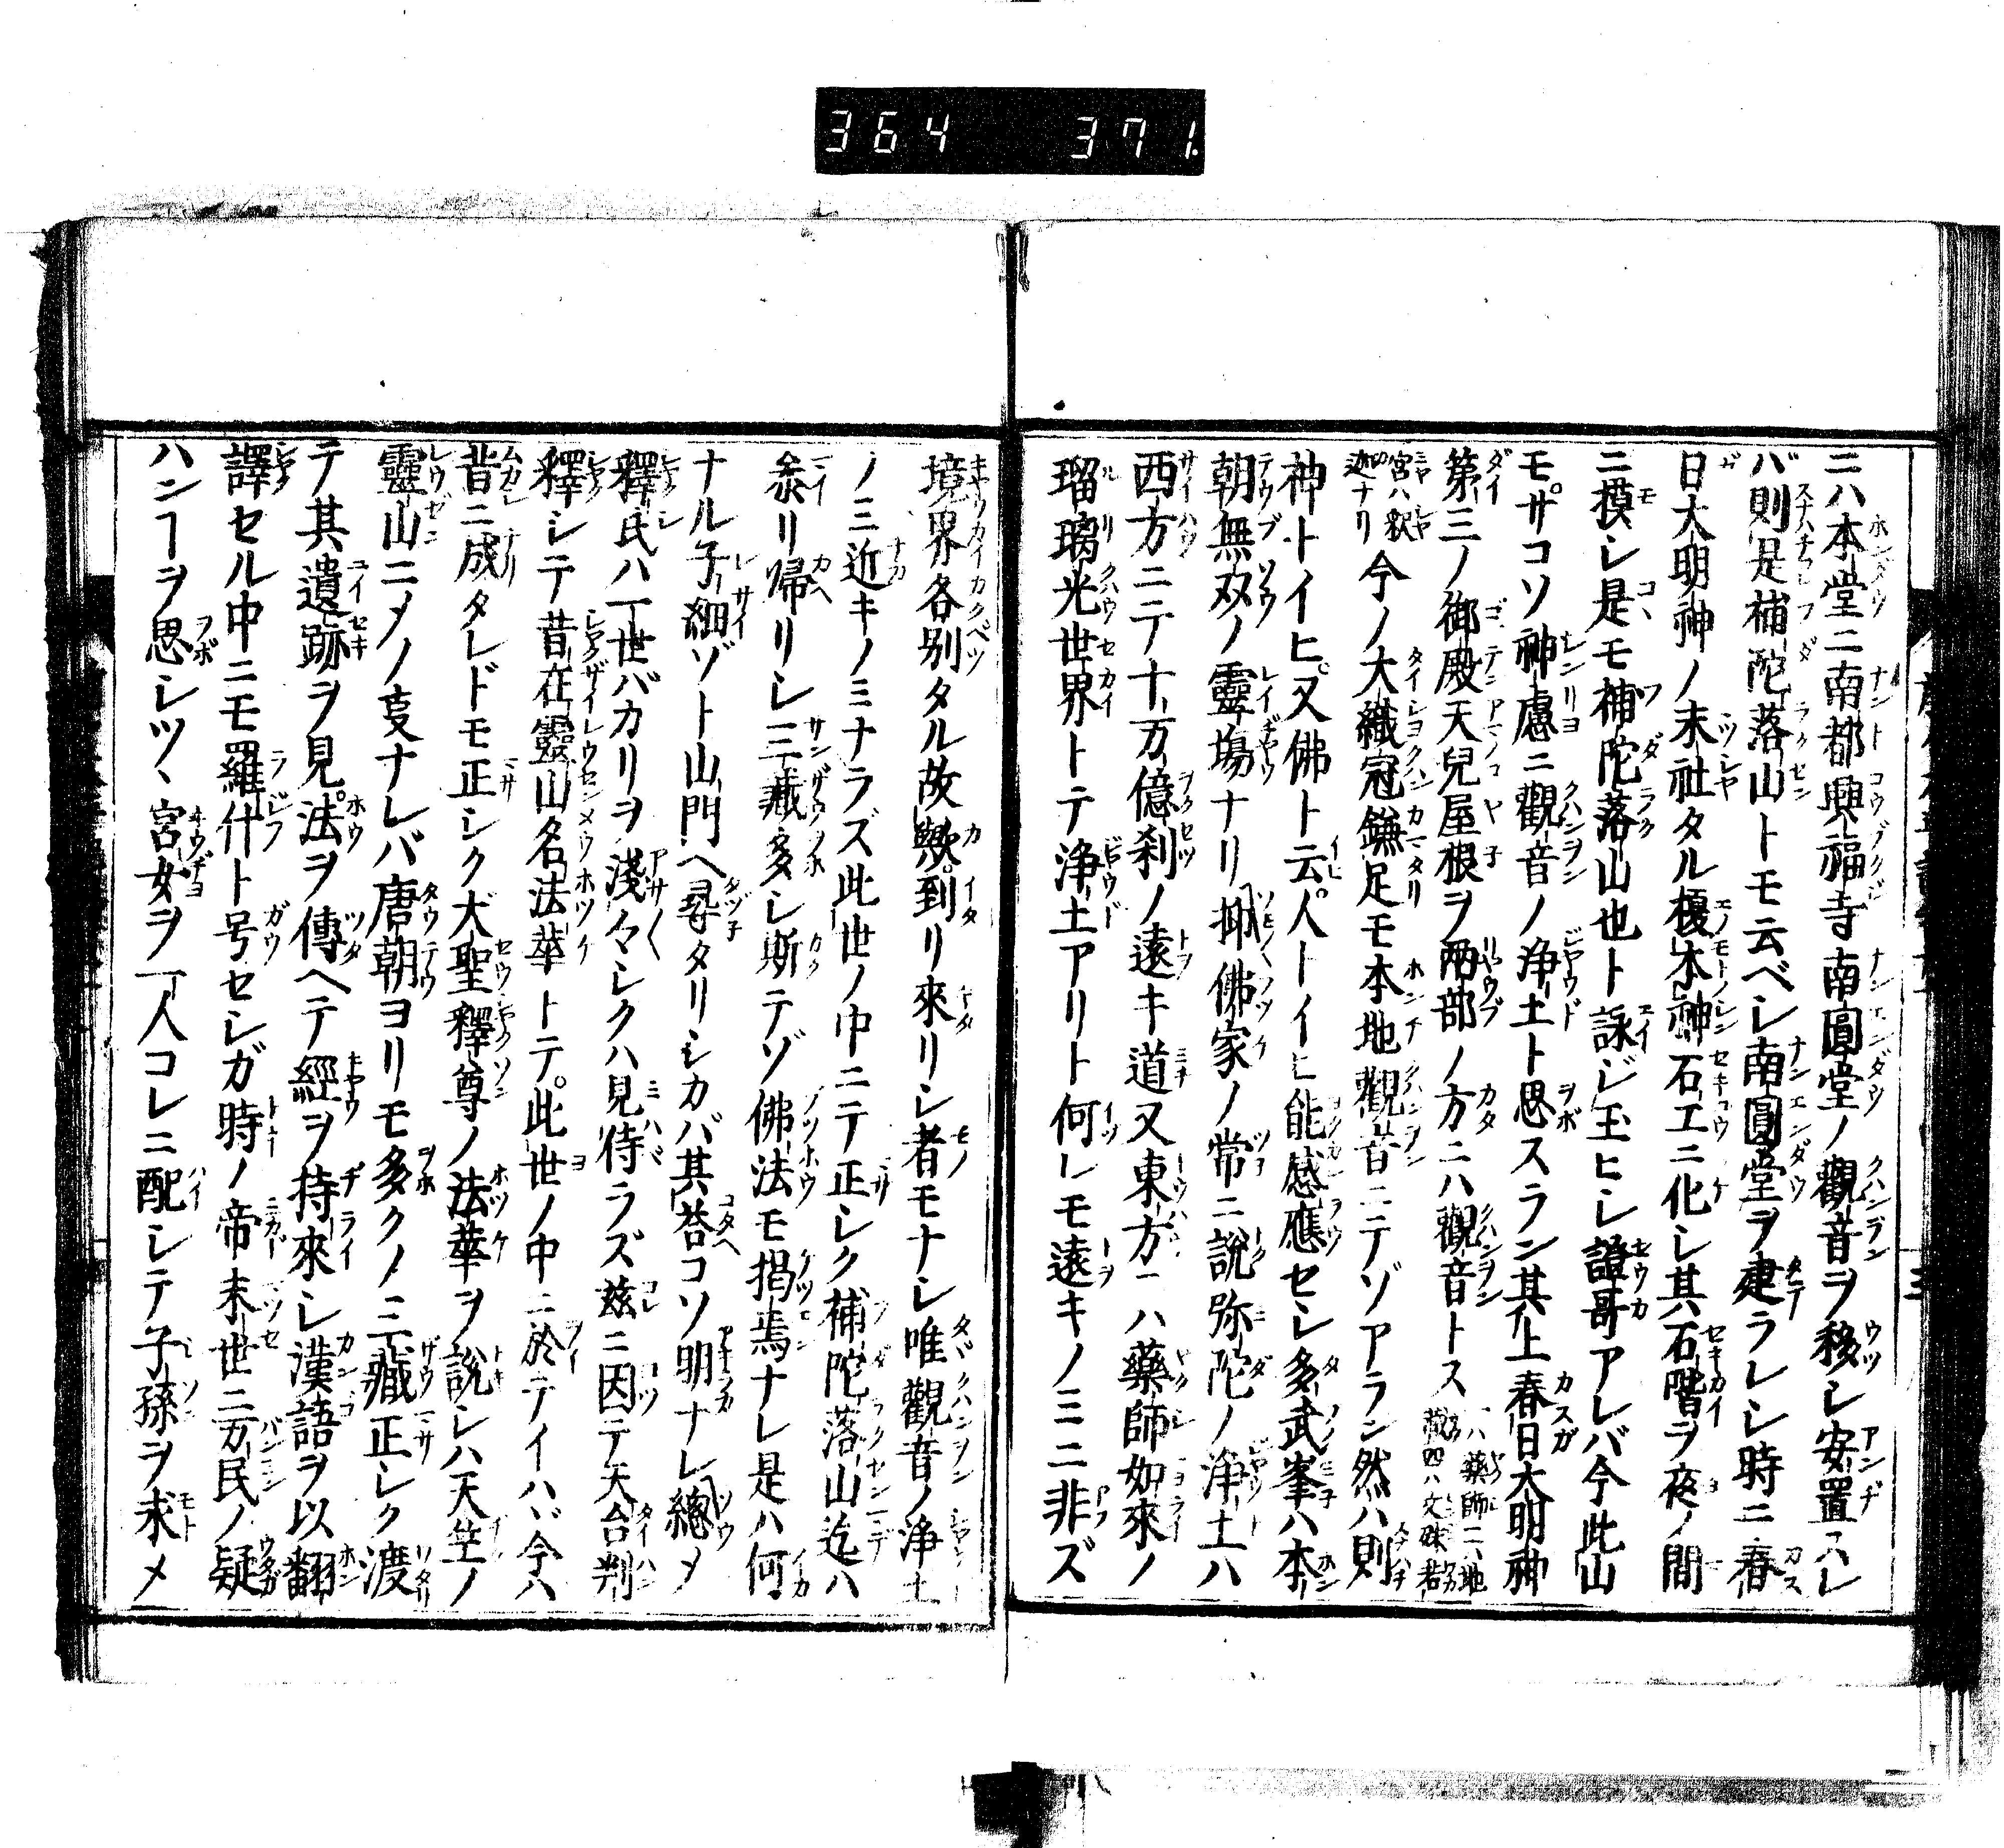 364 371.
ニハ本堂ニ南都興福寺南圓堂ノ觀音ヲ移シ安置スレ
バ則是補陀落山トモ云ベシ南圓堂ヲ建ラレシ時ニ春
日大明神ノ末社タル榎本神石工ニ化シ其石階ヲ夜ノ間
ニ摸シ是モ補陀落山也ト詠ジ玉ヒシ證哥アレバ今此山
モサコソ神慮ニ觀音ノ浄土ト思スラン其上春日大明神
第三ノ御殿天兒屋根ヲ兩部ノ方ニハ觀音トス一ハ藥師二ハ地藏四ハ文殊若
宮ハ釈迦ナリ今ノ大織冠鎌足モ本地觀音ニテゾアラン然ハ則
神トイヒ又佛ト云人トイヒ能感應セシ多武峯ハ本
朝無双ノ靈場ナリ抑佛家ノ常ニ說弥陀ノ浄土ハ
西方ニテ十万億刹ノ遠キ道又東方ニハ藥師如來ノ
瑠璃光世界トテ浄土アリト何レモ遠キノミニ非ズ
境界各別タル故歟到リ來リシ者モナシ唯觀音ノ浄土
ノミ近キノミナラズ此世ノ中ニテ正シク補陀落山迄ハ
参リ帰リシ三藏多シ斯テゾ佛法モ掲焉ナレ是ハ何
ナル子細ゾト山門ヘ尋タリシカバ其荅コソ明ナレ總メ
釋氏ハ一世バカリヲ淺々マシクハ見侍ラズ兹ニ因テ天台判
釋シテ昔在靈山名法華トテ此世ノ中ニ於テイハヾ今ハ
昔ニ成タレドモ正シク大聖釋尊ノ法華ヲ說シハ天竺ノ
靈山ニメノ叓ナレバ唐朝ヨリモ多クノ三藏正シク渡
テ其遺跡ヲ見法ヲ傳ヘテ經ヲ持來シ漢語ヲ以翻
譯セル中ニモ羅什ト号セシガ時ノ帝末世ニ万民ノ疑
ハンヿヲ思シツヽ宮女ヲ一人コレニ配シテ子孫ヲ求メ